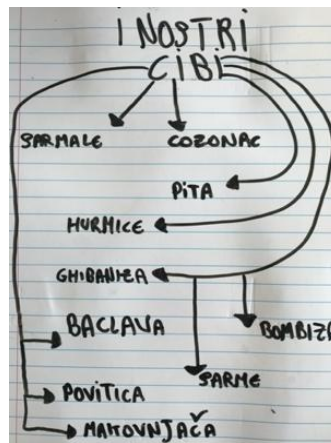 I NOSTRI
CIBI
SARMALE
COZONAC
PITA
HURMICE
GHIBANIZA
BACLAVA
BOMBIZA
SARME
POVITICA
MAKOVNJAČA